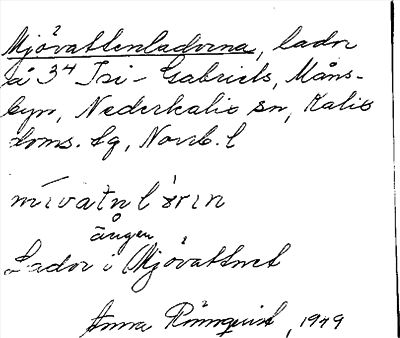 Mjövattenladorna, lador
å 3⁴ Isi-Gabriels, Måns-
byn, Nederkalix sn, Kalix
doms. lg, Norrb. l
ängen
Lador i Mjövattnet
Anna Rönnquist, 1949